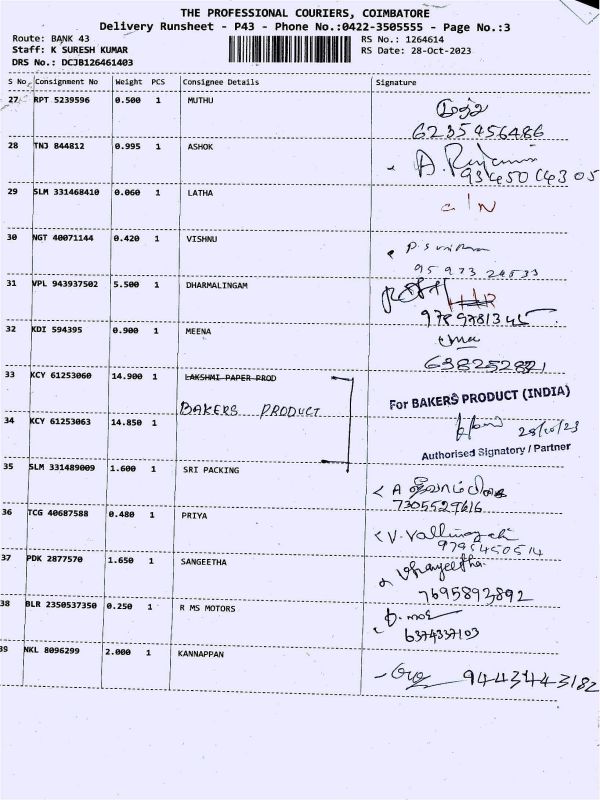 THE PROFESSIONAL COURIERS, COIMBATORE
Delivery Runsheet - P43 - Phone No.:0422-3505555 - Page No.:3
Route: BANK 43 RS No.: 1264614
Staff: K SURESH KUMAR RS Date: 28-Oct-2023
DRS No.: DCJB126461403
S No Consignment No Weight PCS Consignee Details Signature
27 RPT 5239596 0.500 1 MUTHU
6235456486
28 TNJ 844812 0.995 1 ASHOK
29 SLM 331468410 0.060 1 LATHA
30 NGT 40071144 0.420 1 VISHNU
31 VPL 943937502 5.500 1 DHARMALINGAM
32 KDI 594395 0.900 1 MEENA
33 KCY 61253060 14.900 1 LAKSHMI PAPER PROD
BAKERS PRODUCT
For BAKERS PRODUCT (INDIA)
34 KCY 61253063 14.850 1
28/10/23
Authorised Signatory / Partner
35 SLM 331489009 1.600 1 SRI PACKING
36 TCG 40687588 0.480 1 PRIYA
37 PDK 2877570 1.650 1 SANGEETHA
7695892892
38 BLR 2350537350 0.250 1 R MS MOTORS
6374337103
39 NKL 8096299 2.000 1 KANNAPPAN
9443443182